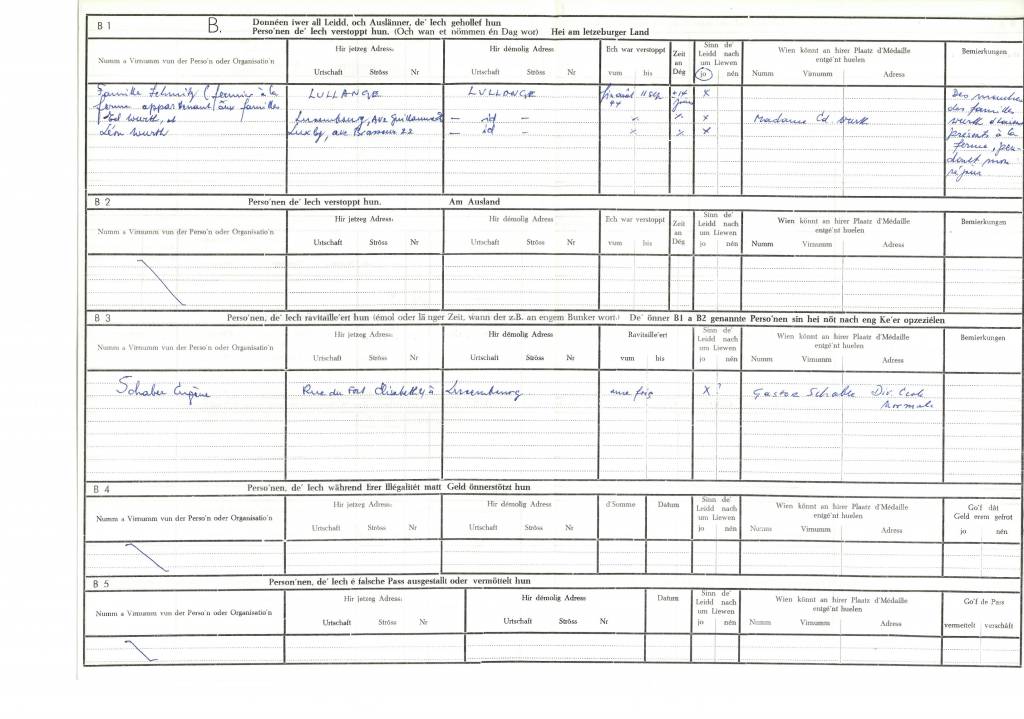 B 1 B. Donnéen iwer all Leidd, och Auslänner, de' Iech gehollef hun
Perso'nen de' Iech verstoppt hun. (Och wan et nömmen én Dag wor) Hei am letzeburger Land
Numm a Virnumm vun der Perso'n oder Organisatio'n
Hir jetzeg Adress:
Urtschaft Ströss Nr
Hir démolig Adress:
Urtschaft Ströss Nr
Ech war verstoppt
vum bis
Zeit
an
Dég
Sinn de'
Leidd nach
um Liewen
jo nén
Wien könnt an hirer Plaatz d'Médaille
entgé'nt huelen
Numm Virnumm Adress
Bemierkungen
Famille Schmitz (fermier à la LULLANGE LULLANGE 11 Sep. x
ferme appartenant aux familles 44
Wurth, et Luxembourg, Ave Guillaume — id — x x Madame Ed. Wurth
Léon Wurth Luxbg, ave Brasseur 22 — id — x x x
Des membres
des familles
Wurth
présents à la
ferme, pen-
dant mon
séjour
B 2 Perso'nen de' Iech verstoppt hun. Am Ausland
Numm a Virnumm vun der Perso'n oder Organisatio'n
Hir jetzeg Adress:
Urtschaft Ströss Nr
Hir démolig Adress:
Urtschaft Ströss Nr
Ech war verstoppt
vum bis
Zeit
an
Dég
Sinn de'
Leidd nach
um Liewen
jo nén
Wien könnt an hirer Plaatz d'Médaille
entgé'nt huelen
Numm Virnumm Adress
Bemierkungen
B 3 Perso'nen, de' Iech ravitaille'ert hun (émol oder länger Zeit, wann der z.B. an engem Bunker wort.) De' önner B1 a B2 genannte Perso'nen sin hei nöt nach eng Ke'er opzezielen
Numm a Virnumm vun der Perso'n oder Organisatio'n
Hir jetzeg Adress:
Urtschaft Ströss Nr
Hir démolig Adress
Urtschaft Ströss Nr
Ravitaille'ert
vum bis
Sinn de'
Leidd nach
um Liewen
jo nén
Wien könnt an hirer Plaatz d'Médaille
entgé'nt huelen
Numm Virnumm Adress
Bemierkungen
Schaber Eugène Rue du Fort Elisabeth à Luxembourg une fois X? Gaston Schable Dir. Ecole
Normale
B 4 Perso'nen, de' Iech während Erer Illégalitét matt Geld önnerstötzt hun
Numm a Virnumm vun der Perso'n oder Organisatio'n
Hir jetzeg Adress
Urtschaft Ströss Nr
Hir démolig Adress:
Urtschaft Ströss Nr
d'Somme
Datum
Sinn de'
Leidd nach
um Liewen
jo nén
Wien könnt an hirer Plaatz d'Médaille
entgé'nt huelen
Numm Virnumm Adress
Go'f dât
Geld erem gefrot
jo nén
B 5 Person'nen, de' Iech é falsche Pass ausgestallt oder vermöttelt hun
Numm a Virnumm vun der Perso'n oder Organisatio'n
Hir jetzeg Adress:
Urtschaft Ströss Nr
Hir démolig Adress
Urtschaft Ströss Nr
Datum
Sinn de'
Leidd nach
um Liewen
jo nén
Wien könnt an hirer Plaatz d'Médaille
entgé'nt huelen
Numm Virnumm Adress
Go'f de Pass
vermettelt verschâft